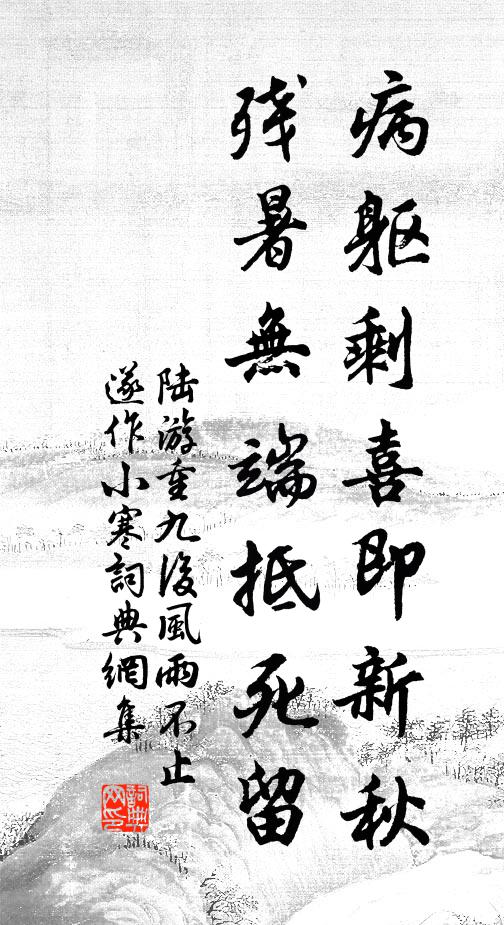 病躯剩喜即新秋
残暑無端抵死留
陆游重九後風雨不止
遂作小寒詞典網集
詞典
网印